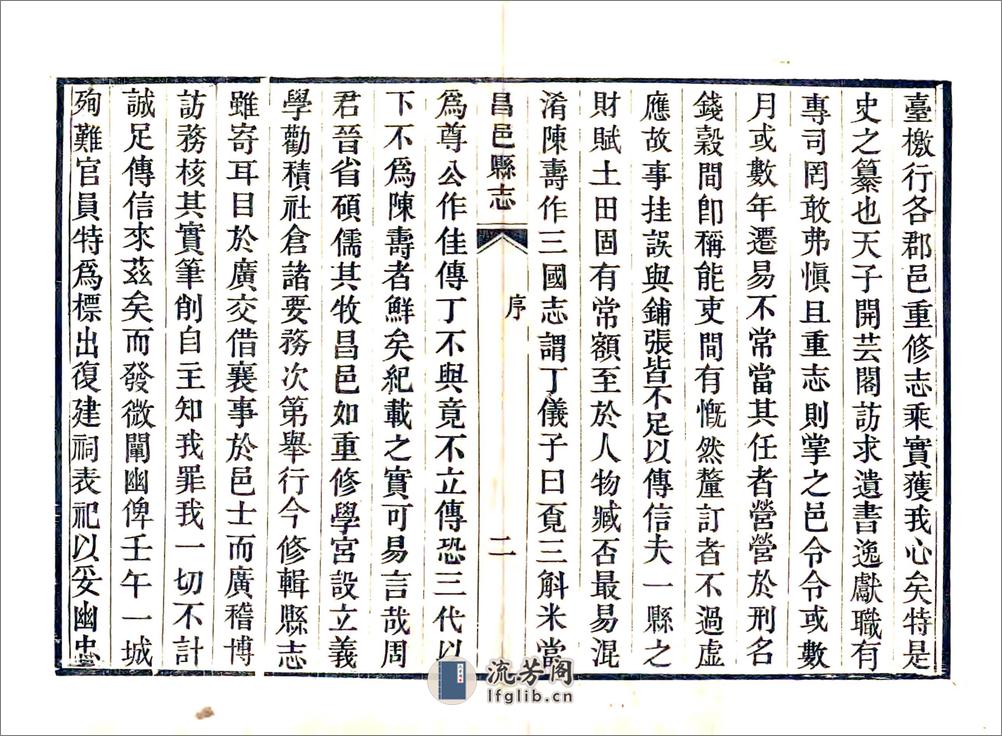 臺檄行各郡邑重修志乘實獲我心矣特是
史之纂也天子開芸閣訪求遺書逸獻職有
專司罔敢弗愼且重志則掌之邑令令或數
月或數年遷易不常當其任者營營於刑名
錢穀間卽稱能吏間有慨然釐訂者不過虛
應故事挂誤與鋪張皆不足以傳信夫一縣之
財賦土田固有常額至於人物臧否最易混
淆陳壽作三國志謂丁儀子曰覔三斛米當
昌邑縣志
序
二
爲尊公作佳傳丁不與竟不立傳恐三代以
下不爲陳壽者鮮矣紀載之實可易言哉周
君晉省碩儒其牧昌邑如重修學宮設立義
學勸積社倉諸要務次第舉行今修輯縣志
雖寄耳目於廣交借襄事於邑士而廣稽博
訪務核其實筆削自主知我罪我一切不計
誠足傳信來茲矣而發微闡幽俾壬午一城
殉難官員特爲標出復建祠表祀以妥幽忠
流芳阁
lfglib.cn